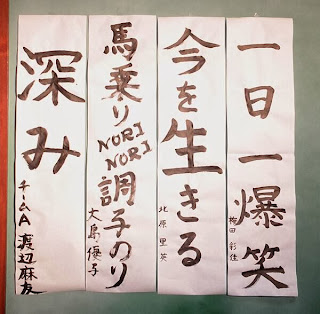 一日一爆笑
梅田 彩佳
今を生きる
北原里英
馬乗りNORI NORI調子のり
大島優子
深み
チームA 渡辺麻友